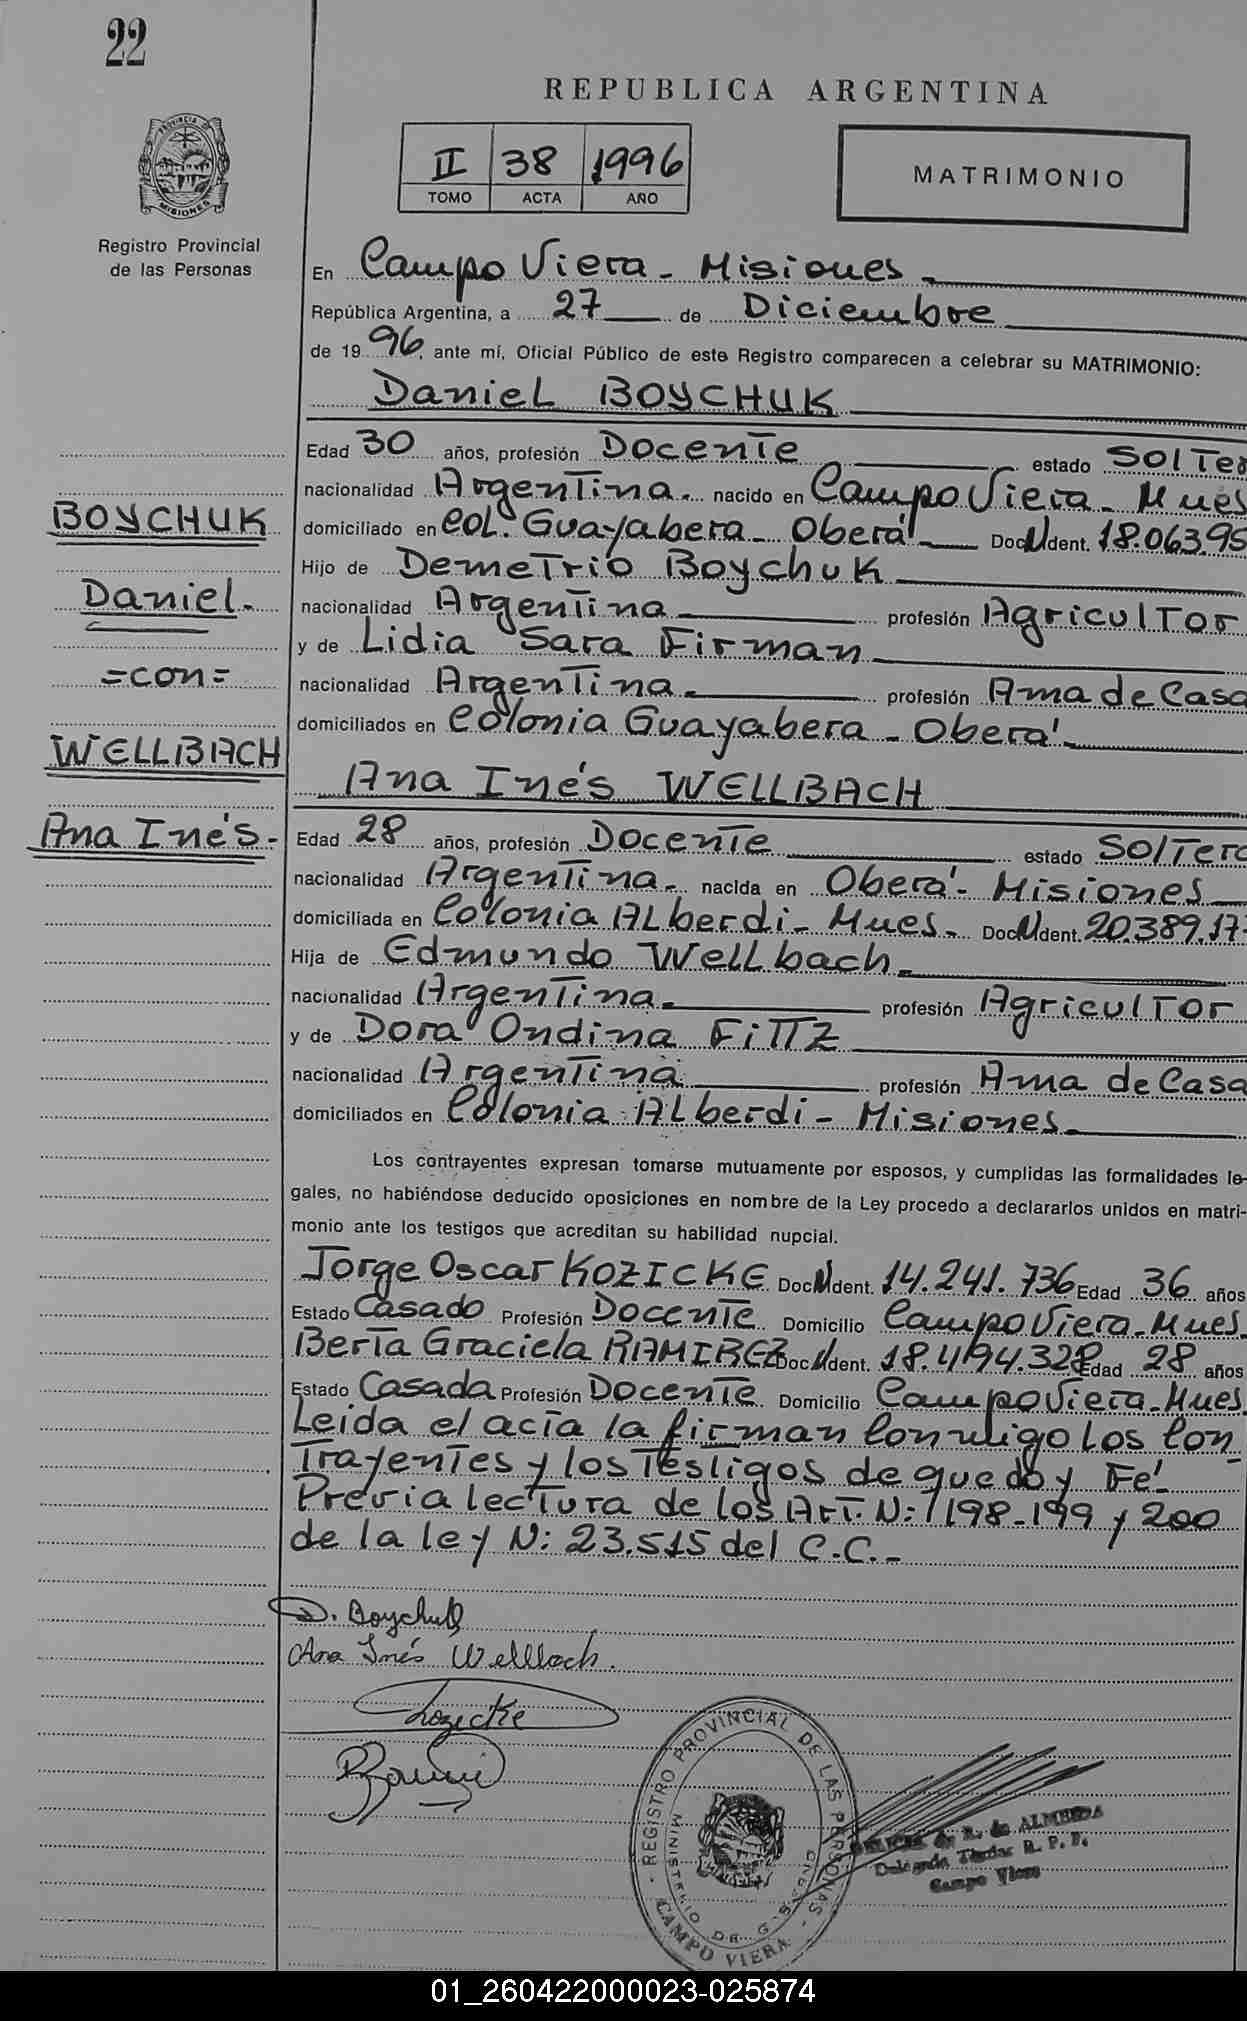 22
REPUBLICA ARGENTINA
II 38 1996
TOMO ACTA AÑO
MATRIMONIO
PROVINCIA DE
MISIONES
Registro Provincial
de las Personas
En Campo Viera - Misiones -
República Argentina, a 27 de Diciembre
de 19 96, ante mí, Oficial Público de este Registro comparecen a celebrar su MATRIMONIO:
Daniel BOYCHUK
Edad 30 años, profesión Docente estado Solter
nacionalidad Argentina - nacido en Campo Viera - Mnes
domiciliado en Col. Guayabera - Oberá - Doc. N Ident. 18.06395
Hijo de Demetrio Boychuk
nacionalidad Argentina profesión Agricultor
y de Lidia Sara Firman
nacionalidad Argentina - profesión Ama de Casa
domiciliados en Colonia Guayabera - Oberá -
Ana Inés WELLBACH
Edad 28 años, profesión Docente estado Soltera
nacionalidad Argentina - nacida en Oberá - Misiones
domiciliada en Colonia Alberdi - Mnes - Doc. N Ident. 20.389.17
Hija de Edmundo Wellbach -
nacionalidad Argentina - profesión Agricultor
y de Dora Ondina Fittz
nacionalidad Argentina profesión Ama de Casa
domiciliados en Colonia Alberdi - Misiones -
BOYCHUK
Daniel -
= con =
WELLBACH
Ana Inés -
Los contrayentes expresan tomarse mutuamente por esposos, y cumplidas las formalidades le-
gales, no habiéndose deducido oposiciones en nombre de la Ley procedo a declararlos unidos en matri-
monio ante los testigos que acreditan su habilidad nupcial.
Jorge Oscar KOZICKE Doc. N Ident. 14.241.736 Edad 36 años
Estado Casado Profesión Docente Domicilio Campo Viera - Mnes.
Berta Graciela RAMIREZ Doc. N Ident. 18.494.328 Edad 28 años
Estado Casada Profesión Docente Domicilio Campo Viera - Mnes
Leida el acta la firman conmigo los con
Trayentes y los Testigos de que doy Fé -
Previa lectura de los Art. N: 198-199 y 200
de la ley N: 23.515 del C.C. -
D. Boychuk
Ana Inés Wellbach.
Kozicke
REGISTRO PROVINCIAL DE LAS PERSONAS
MINISTERIO DE G.
CAMPO VIERA
de R. de ALMEIDA
Delegada Titular R. P. P.
Campo Viera
01_260422000023-025874